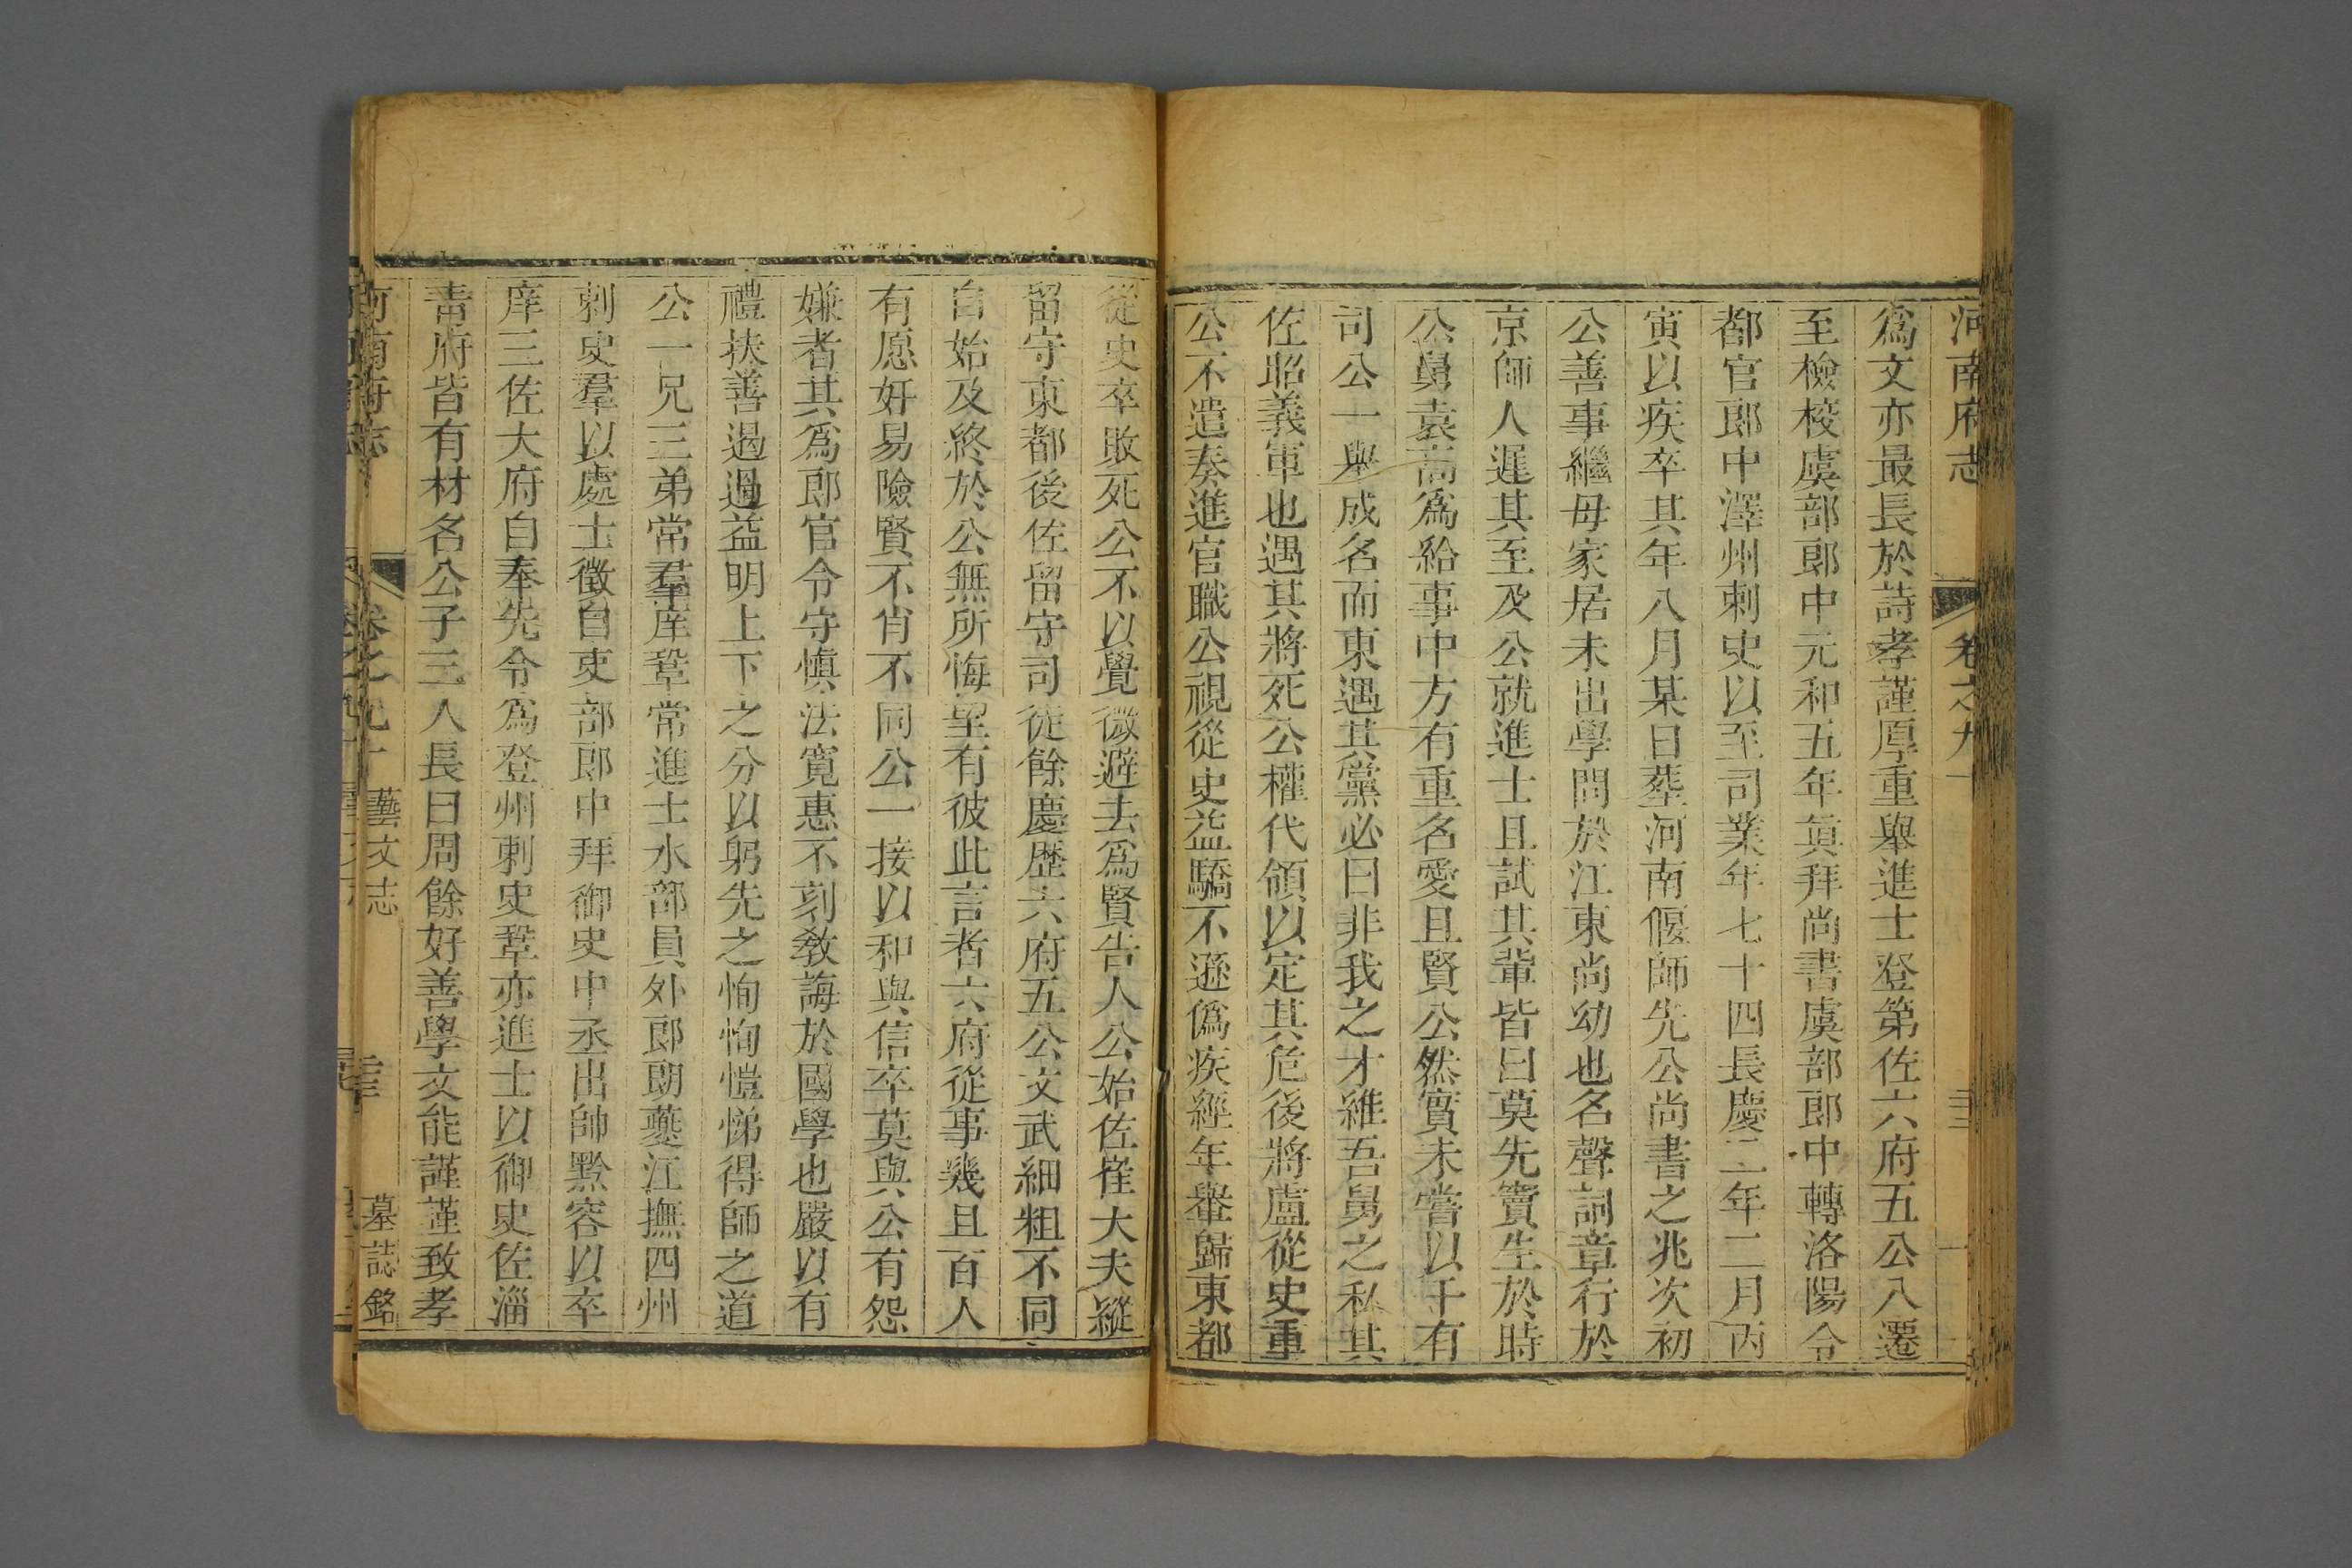 河南府志 卷之九十
爲文亦最長於詩孝謹厚重舉進士登第佐六府五公八遷
至檢校虞部郎中元和五年眞拜尚書虞部郎中轉洛陽令
都官郎中澤州刺史以至司業年七十四長慶二年二月丙
寅以疾卒其年八月某日葬河南偃師先公尚書之兆次初
公善事繼母家居未出學問於江東尚幼也名聲詞章行於
京師人遲其至及公就進士且試其輩皆曰莫先竇生於時
公舅袁高爲給事中方有重名愛且賢公然實未嘗以干有
司公一舉成名而東遇其黨必曰非我之才維吾舅之私其
佐昭義軍也遇其將死公權代領以定其危後將盧從史重
公不遣奏進官職公視從史益驕不遜僞疾經年轝歸東都
從史卒敗死公不以覺微避去爲賢告人公始佐崔大夫縱
留守東都後佐留守司徒餘慶歷六府五公文武細粗不同
自始及終於公無所悔望有彼此言者六府從事幾且百人
有愿奸易險賢不肖不同公一接以和與信卒莫與公有怨
嫌者其爲郎官令守愼法寛惠不刻敎誨於國學也嚴以有
禮扶善遏過益明上下之分以躬先之恂恂愷悌得師之道
公一兄三弟常羣庠鞏常進士水部員外郎朗夔江撫四州
刺史羣以處士徵自吏部郎中拜御史中丞出帥黔容以卒
庠三佐大府自奉先令爲登州刺史鞏亦進士以御史佐淄
靑府皆有材名公子三人長曰周餘好善學文能謹謹致孝
河南府志 卷之九十 藝文志 墓誌銘